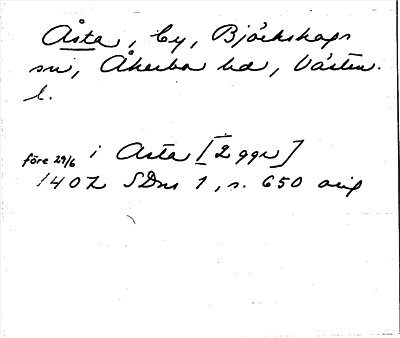 Åsta, by, Björkskogs
sn, Åkerbo hd, Västm.
l.
före 29/6 i Asta [2 ggr]
1407 SDns 1, s. 650 orig